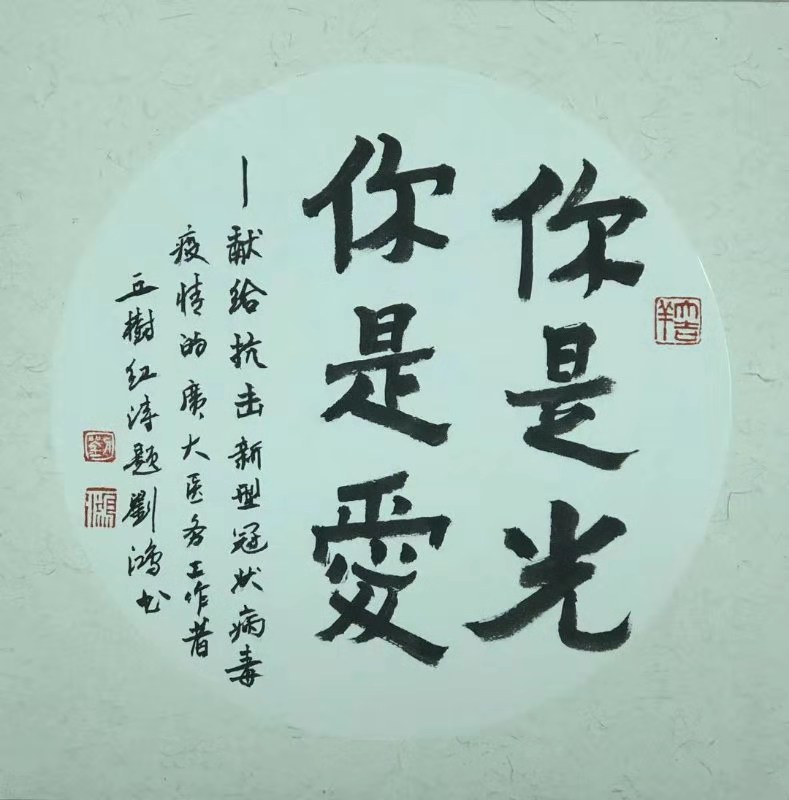 你是光
你是愛
—獻给抗击新型冠状病毒
疫情的廣大医务工作者
丘樹红诗题劉鴻书
劉
鴻